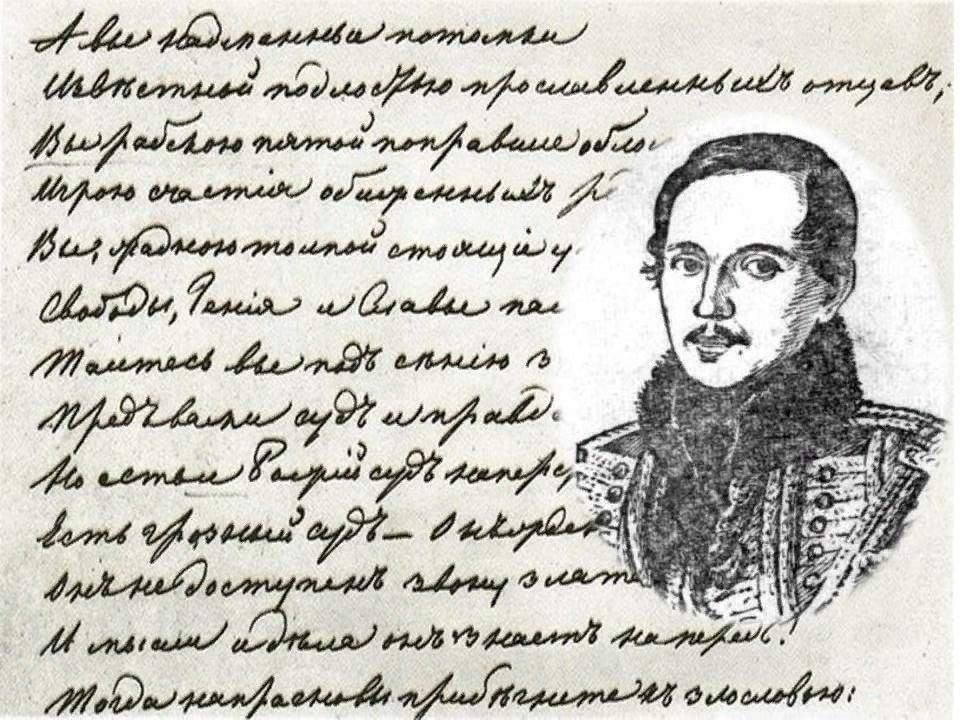 А вы надменные потомки
Извѣстной подлостью прославленныхъ отцевъ,
Вы рабскою пятой поправшие обло
Игрою счастія обиженныхъ р
Вы, жадною толпой стоящіе у
Свободы, Генія и Славы пал
Таитесь вы подъ сѣнію з
Предъ вами судъ и правд
Но есть и Божій судъ наперс
Есть грозный судъ — Онъ ждет
Онъ не доступенъ звону злат
И мысли и дѣла онъ знаетъ на передъ!
Тогда напрасно вы прибѣгнете къ злословью: